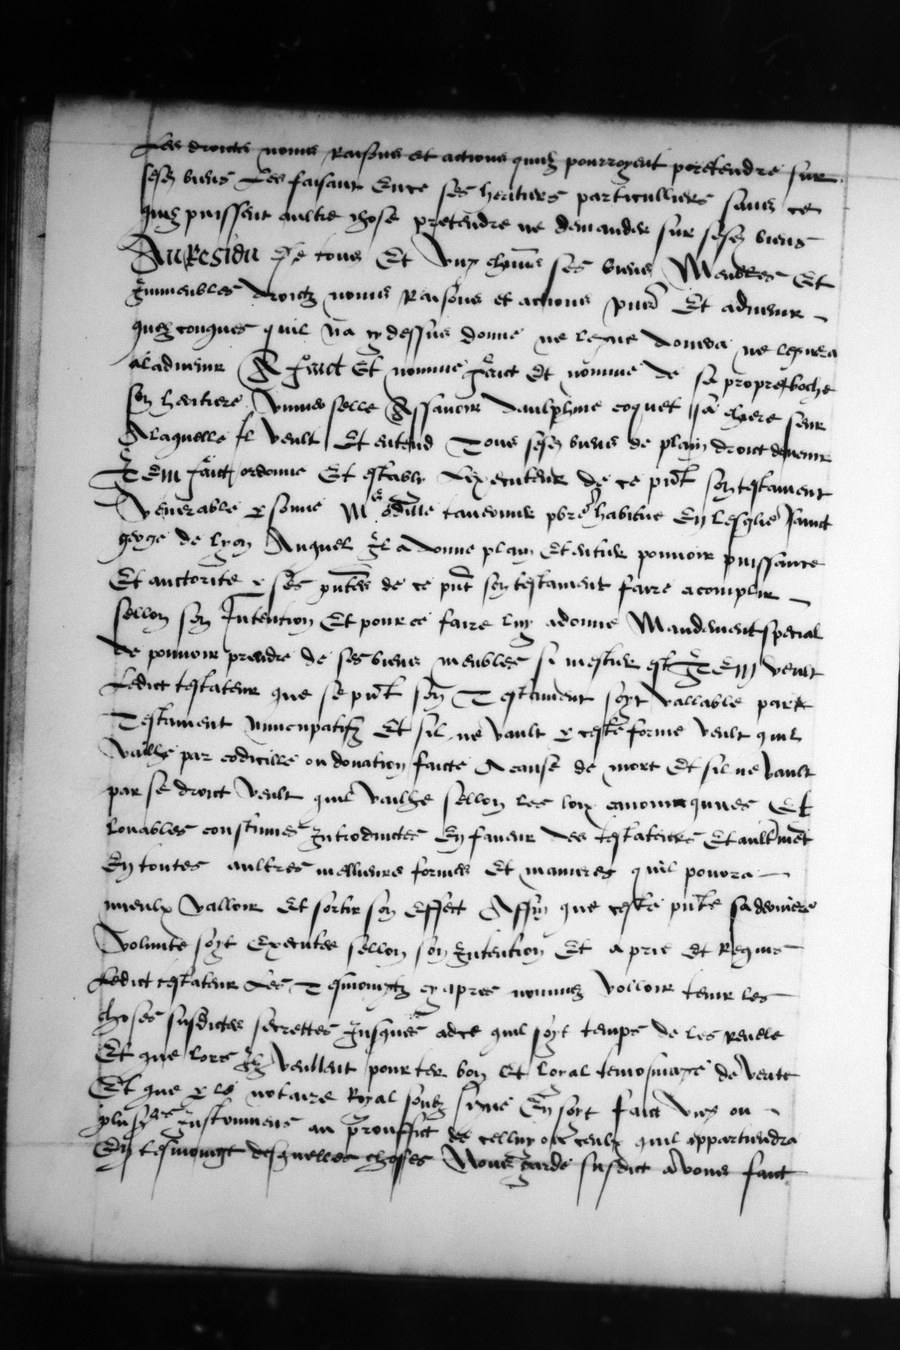 Les droictz noms raisons et actions quilz pourroyent pretendre sur
sesd biens Les faisant En ce ses heritiers particulliers sans ce
quilz puissent aultre chose pretendre ne demander sur sesd biens
Au Residu De tous Et ungs chuns ses biens Meubles Et
Immeubles droictz noms Raisons et actions pntz Et advenir
quelzconques quil na cy dessus donne ne legue donra ne leguera
a ladvenir A faict Et nomme faict Et nomme de sa propre boche
son heritiere universelle Assavoir daulphine coquet sa chere seur
A laquelle Il veult Et entend Tous sesd biens de plain droict devenir
Item faict ordonne Et establi Lexecuteur de ce pnt son testament
Venerable psonne Me odille pbre habitue En lesglise sainct
de lyon Auquel Il a donne plain Et entier pouvoir puissance
Et auctorite p ses pntes de ce pnt son testament faire acomplir
sellon son Intention Et pour ce faire luy a donne Mandement special
de pouvoir prendre de ses biens meubles si mestier est Item veult
Ledict testateur que se pnt son Testament soyt vallable par
Testament nuncupatifz Et sil ne vault p ceste forme veult quil
vailhe par codicille ou donation faicte A cause de mort Et sil ne vault
par se droict veult quil vailhe sellon les loix canonicques Et
louables coustumes Introductes En faveur des testateurs Et aultmet
En toutes aultres mellieurs formes Et manieres quil pourra
mieulx valloir Et sortir son Effect Affin que ceste pnte sa derniere
Volunte soyt Executee sellon son Intention Et a prie Et Requis
Ledict testateur Les Tesmoingtz cy apres nommez volloir tenir les
choses susdictes secrettes Jusques ad ce quil soyt temps de les revele
Et que lors Ilz veullent pourter bon Et loyal temoniage de verite
Et que p le notaire Royal soubz signe En soyt faict ung ou
plusrs Instrumens au prouffict de celluy ou ceulx quil appartiendra
En tesmoingt desquelles choses Nous garde susdict avons faict